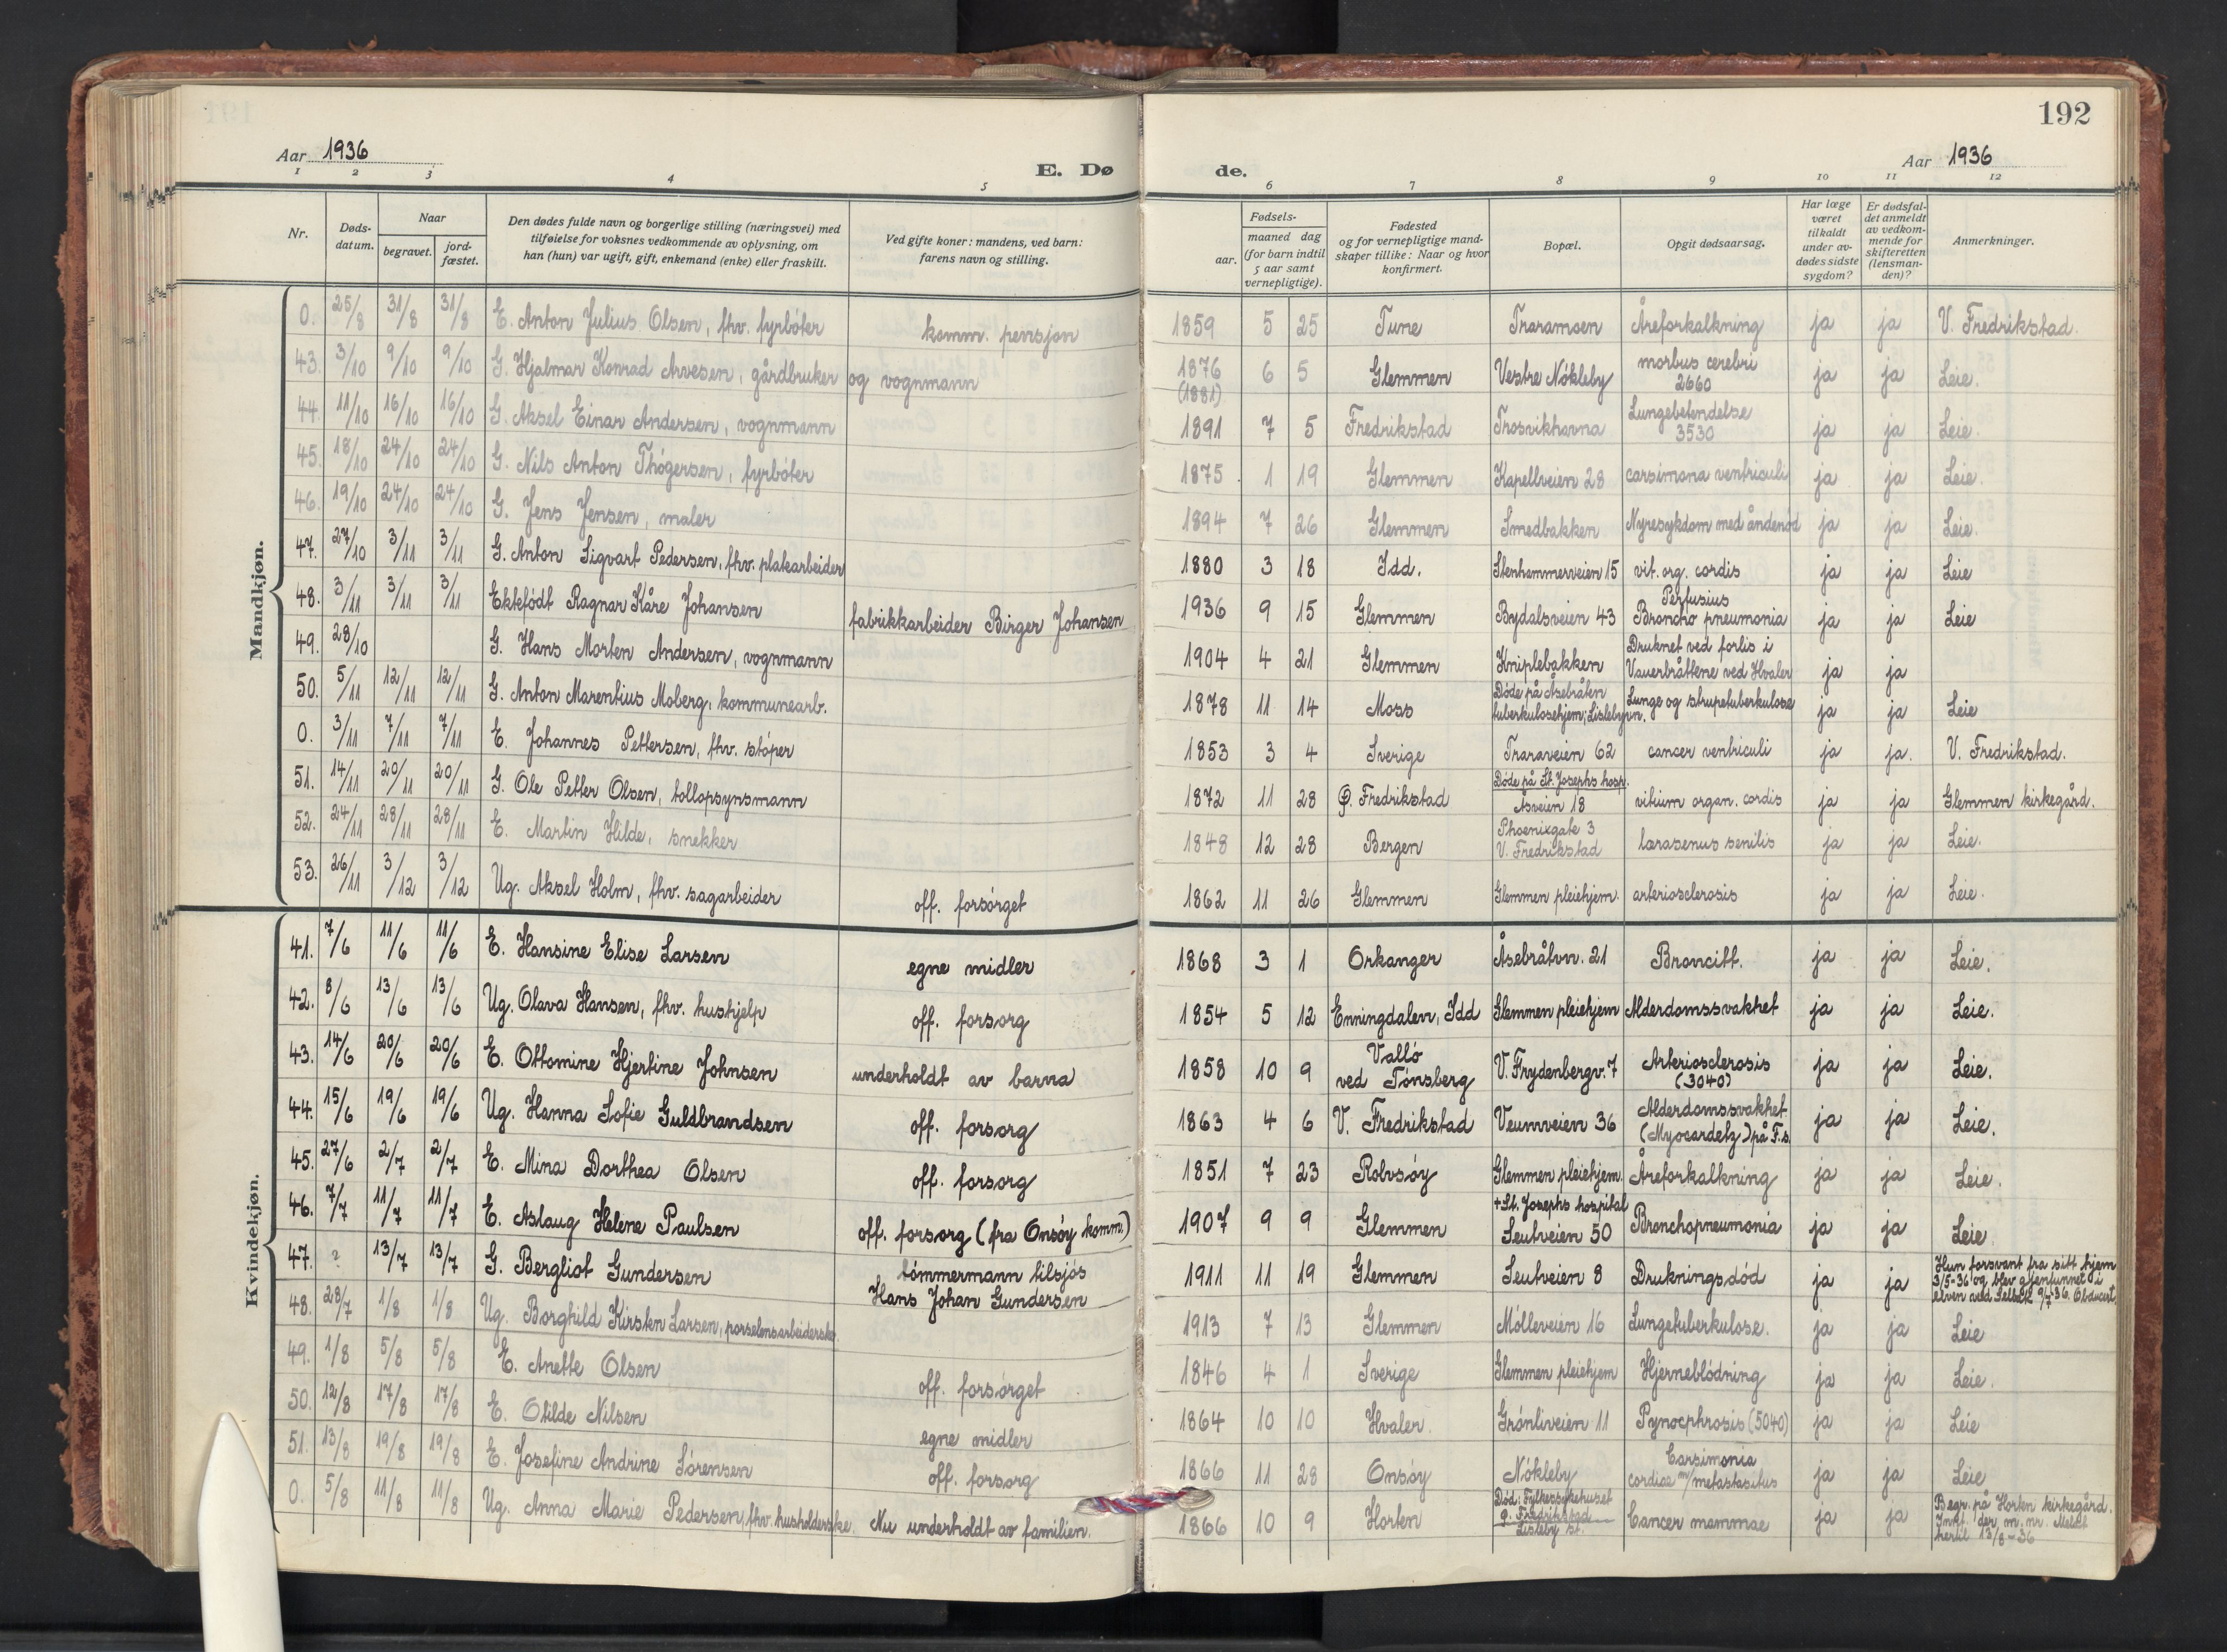 192
Aar 1936
E. Dø
de.
Aar 1936
1 2 3 4 5 6 7 8 9 10 11 12
Nr.
Døds-
datum.
Naar
begravet.
jord-
fæstet.
Den dødes fulde navn og borgerlige stilling (næringsvei) med
tilføielse for voksnes vedkommende av oplysning, om
han (hun) var ugift, gift, enkemand (enke) eller fraskilt.
Ved gifte koner: mandens, ved barn:
farens navn og stilling.
Fødsels-
aar.
maaned dag
(for barn indtil
5 aar samt
vernepligtige).
Fødested
og for vernepligtige mand-
skaper tillike: Naar og hvor
konfirmert.
Bopæl.
Opgit dødsaarsag.
Har læge
været
tilkaldt
under av-
dødes sidste
sygdom?
Er dødsfal-
det anmeldt
av vedkom-
mende for
skifteretten
(lensman-
den)?
Anmerkninger.
Mandkjøn.
0. 25/8 31/8 31/8 E. Anton Julius Olsen, fhv. fyrbøter komm. pensjon 1859 5 25 Tune Traramoen Åreforkalkning ja ja V. Fredrikstad.
43. 3/10 9/10 9/10 G. Hjalmar Konrad Arvesen, gårdbruker og vognmann 1876 (1881) 6 5 Glemmen Vestre Nøkleby morbus cerebri 2660 ja ja Leie.
44. 11/10 16/10 16/10 G. Aksel Einar Andersen, vognmann 1891 7 5 Fredrikstad Trosvikhavna Lungebetendelse 3530 ja ja Leie.
45. 18/10 24/10 24/10 G. Nils Anton Thøgersen, fyrbøter 1875 1 19 Glemmen Kapellveien 28 carsimona ventriculi ja ja Leie.
46. 19/10 24/10 24/10 G. Jens Jensen, maler 1894 7 26 Glemmen Smedbakken Nyresykdom med åndenød ja ja Leie.
47. 27/10 3/11 3/11 G. Anton Sigvart Pedersen, fhv. platarbeider 1880 3 18 Idd. Stenhammerveien 15 vit. org. cordis ja ja Leie
48. 3/11 3/11 3/11 Ektefødt Ragnar Kåre Johansen fabrikkarbeider Birger Johansen 1936 9 15 Glemmen Bydalsveien 43 Pertusius Broncho pneumonia ja ja Leie
49. 28/10 G. Hans Morten Andersen, vognmann 1904 4 21 Glemmen Kniplebakken Druknet ved forlis i Vauerbråttene ved Hvaler ja ja
50. 5/11 12/11 12/11 G. Anton Marentius Moberg, kommunearb. 1878 11 14 Moss Døde på Åsebråten tuberkulosehjem; Lislebyvn. Lunge og strupetuberkulose ja ja Leie
0. 3/11 7/11 7/11 E. Johannes Pettersen, fhv. støper 1853 3 4 Sverige Traraveien 62 cancer ventriculi ja ja. V. Fredrikstad.
51. 14/11 20/11 20/11 G. Ole Petter Olsen, tollopsynsmann 1872 11 28 Ø. Fredrikstad Døde på St. Josephs hosp. Åsveien 18 vitium organ. cordis ja ja Glemmen kirkegård.
52. 24/11 28/11 28/11 E. Martin Hilde, snekker 1848 12 28 Bergen Phoenixgate 3 V. Fredrikstad larasenus senilis ja ja Leie.
53. 26/11 3/12 3/12 Ug. Aksel Holm, fhv. sagarbeider off. forsørget 1862 11 26 Glemmen Glemmen pleiehjem. arteriosclerosis ja ja Leie.
Kvindekjøn.
41. 7/6 11/6 11/6 E. Hansine Elise Larsen egne midler 1868 3 1 Orkanger Åsebråtvn. 21 Broncitt. ja ja Leie.
42. 8/6 13/6 13/6 Ug. Olava Hansen, fhv. hushjelp off. forsorg 1854 5 12 Enningdalen, Idd Glemmen pleiehjem Alderdomssvakhet ja ja Leie.
43. 14/6 20/6 20/6 E. Ottomine Hjertine Johnsen underholdt av barna 1858 10 9 Valló ved Tønsberg V. Frydenbergv. 7 Arteriosclerosis (3040) ja ja Leie.
44. 15/6 19/6 19/6 Ug. Hanna Sofie Guldbrandsen off. forsorg 1863 4 6 V. Fredrikstad Veumveien 36 Alderdomssvakhet (Myocardetz) på F.s. ja ja Leie.
45. 27/6 2/7 2/7 E. Mina Dorthea Olsen off. forsorg 1851 7 23 Rolvsøy Glemmen pleiehjem. Åreforkalkning ja ja Leie.
46. 7/7 11/7 11/7 E. Aslaug Helene Paulsen off. forsorg (fra Onsøy komm.) 1907 9 9 Glemmen +St. Josephs hospital Seutveien 50 Bronchopneumonia ja ja Leie
47. ? 13/7 13/7 G. Bergliot Gundersen tømmermann tilsjøs Hans Johan Gundersen 1911 11 19 Glemmen Seutveien 8 Drukningsdød ja ja Hun forsvant fra sitt hjem 3/5-36 og blev gjenfunnet i elven ved Selbak 9/7-36. Obducert.
48. 28/7 1/8 1/8 Ug. Borghild Kirsten Larsen, porselensarbeiderske. 1913 7 13 Glemmen Mølleveien 16 Lungetuberkulose. ja ja Leie
49. 1/8 5/8 5/8 E. Anette Olsen off. forsørget 1846 4 1 Sverige Glemmen pleiehjem Hjerneblødning ja ja Leie.
50. 12/8 17/8 17/8 E. Otilde Nilsen egne midler 1864 10 10 Hvaler. Grønliveien 11 Pynocphrosis (5040) ja ja Leie
51. 13/8 19/8 19/8 E. Josefine Andrine Sørensen off. forsorg 1866 11 28 Onsøy Nøkleby Carsimonia cordiae m/metastasitus ja ja Leie
0. 5/8 11/8 11/8 Ug. Anna Marie Pedersen, fhv. husholderske. Nu underholdt av familien. 1866 10 9 Horten Død: Fylkessykehuset Ø. Fredrikstad Lisleby st. Cancer mammae ja ja Begr. på Horten kirkegård. Innf. der m. nr. Meldt hertil 13/8-36